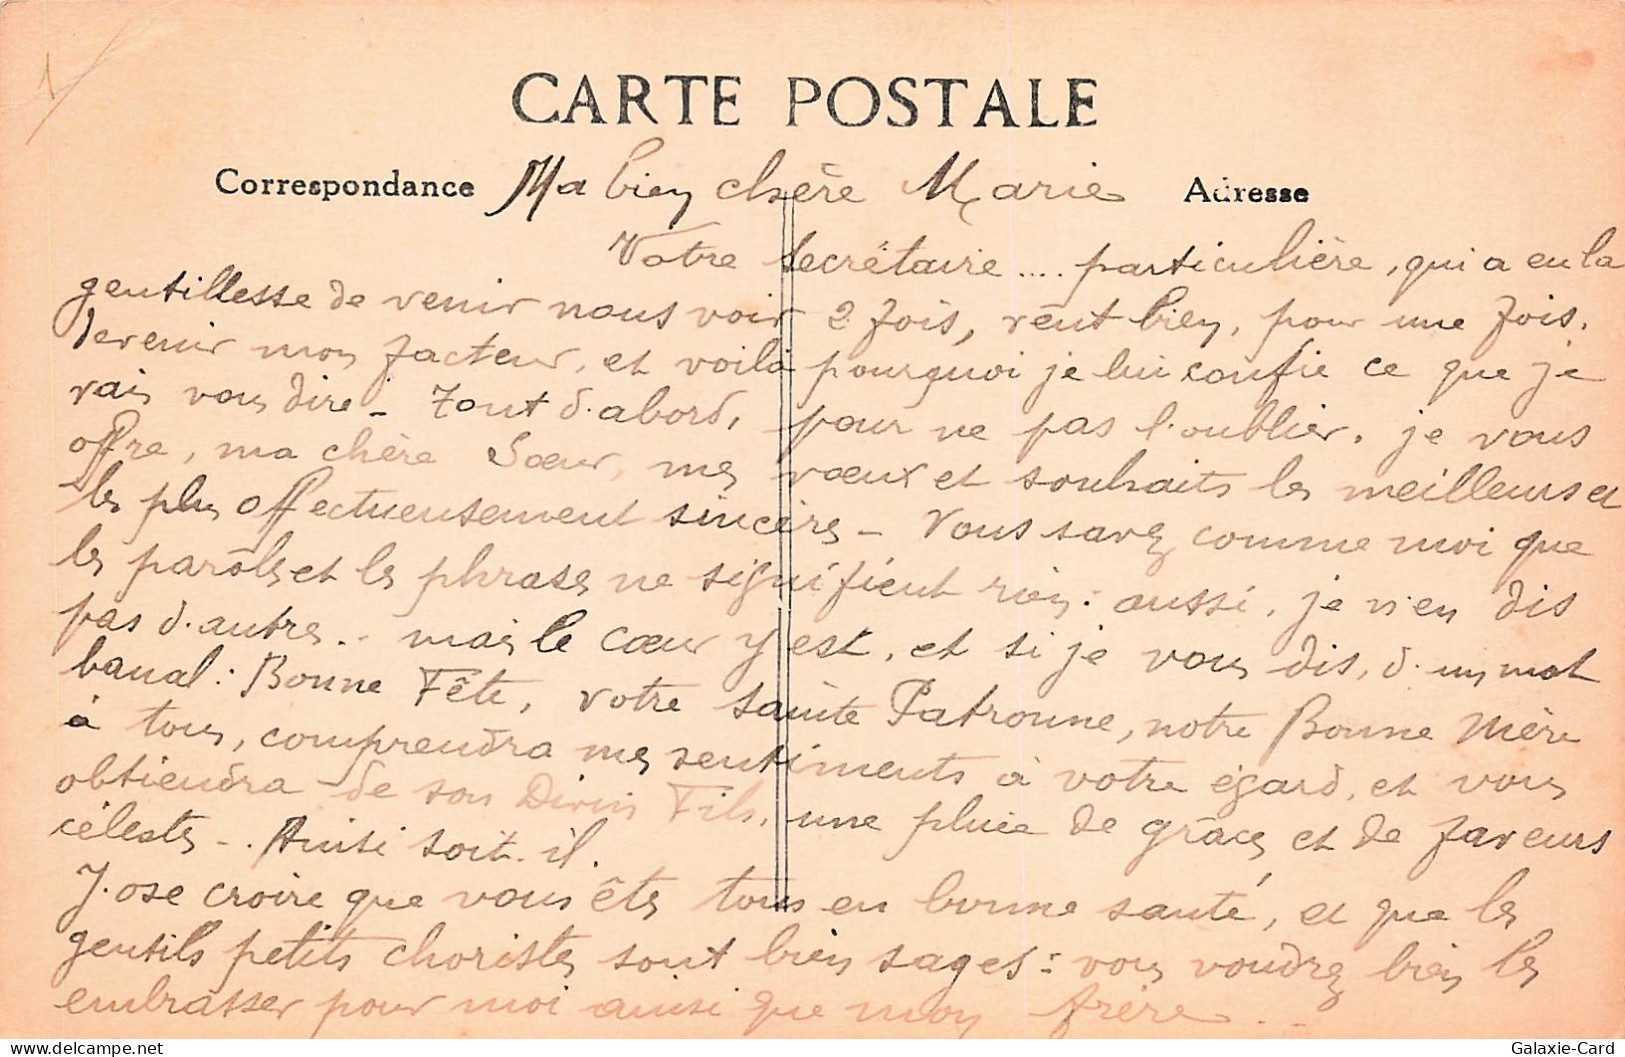 CARTE POSTALE
Correspondance Ma bien chère Marie Adresse
Votre secrétaire .... particulière, qui a eu la
gentillesse de venir nous voir 2 fois, veut bien, pour une fois,
devenir mon facteur, et voilà pourquoi je lui confie ce que je
vais vous dire - Tout d'abord, pour ne pas l'oublier, je vous
offre, ma chère Sœur, mes vœux et souhaits les meilleurs et
les plus affectueusement sincères - Vous savez comme moi que
les parôles et les phrases ne signifient rien : aussi, je n'en dis
pas d'autres .. mais le cœur y est, et si je vous dis, d'un mot
banal : Bonne Fête, votre sainte Patronne, notre Bonne Mère
à tous, comprendra mes sentiments à votre égard, et vous
obtiendra de son Divin Fils, une pluie de grâces et de faveurs
célestes -. Ainsi soit-il.
J'ose croire que vous êtes tous en bonne santé, et que les
gentils petits choristes sont bien sages : vous voudrez bien les
embrasser pour moi ainsi que mon frère ...
Galaxie-Card